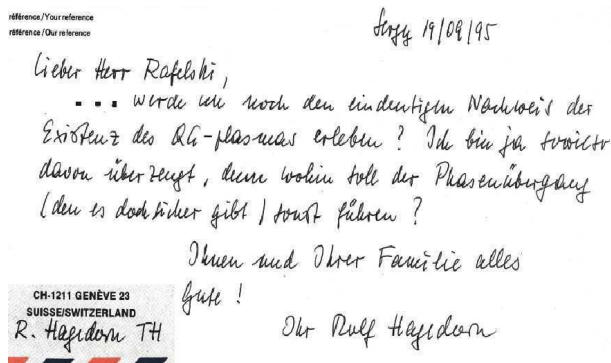 référence/Your reference
référence/Our reference
Sergy 19/09/95
Lieber Herr Rafelski,
... werde ich noch den eindeutigen Nachweis der
Existenz des QG-plasmas erleben? Ich bin ja sowieso
davon überzeugt, denn wohin soll der Phasenübergang
(den es doch sicher gibt) sonst führen?
Ihnen und Ihrer Familie alles
Gute!
CH-1211 GENÈVE 23
SUISSE/SWITZERLAND
R. Hagedorn TH
Ihr Rolf Hagedorn